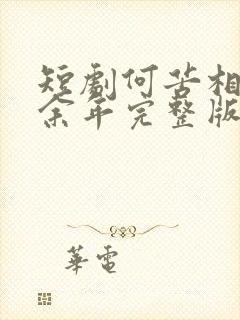 短劇何苦相
余年完整版
華電